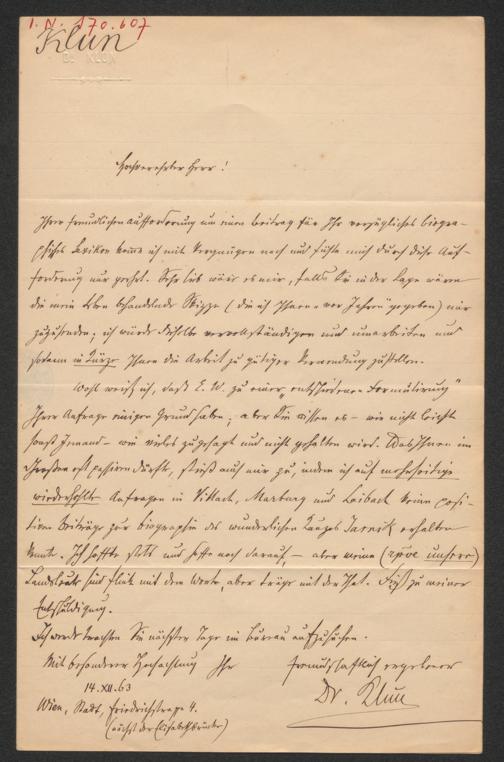 I. N. 170.607
Klun
Dr. KLUN
Hochverehrter Herr!
Ihrer freundlichen Aufforderung um einen Beitrag für Ihr vorzügliches biogra-
phisches Lexikon komme ich mit Vergnügen nach und fühle mich durch diese Auf-
forderung nur geehrt. Sehr lieb wäre es mir, falls Sie in der Lage wären
die mein Leben behandelnde Skizze (die ich Ihnen vor Jahren gegeben) mir
zuzusenden; ich würde dieselbe vervollständigen und umarbeiten und
sodann in Kürze Ihnen die Arbeit zu gütiger Verwendung zustellen.
Wohl weiß ich, daß E. W. zu einer „entschiedenen Formulirung"
Ihrer Anfrage einigen Grund haben; aber Sie wissen es – wie nicht leicht
sonst Jemand – wie vieles zugesagt und nicht gehalten wird. Was Ihnen im
Großen oft passiren dürfte, stieß auch mir zu, indem ich auf mehrseitige
wiederholte Anfragen in Villach, Marburg und Laibach keine posi-
tiven Beiträge zur Biographie des wunderlichen Kauzes Jarnik erhalten
konnte. Ich hoffte stets und hoffe noch darauf, – aber meine
Landsleute sind flink mit dem Worte, aber träge mit der That. Dieß zu meiner
Entschuldigung.
Ich werde trachten Sie nächster Tage im Bureau aufzusuchen.
Mit besonderer Hochachtung Ihr freundschaftlich ergebener
14. XII. 63
Dr. Klun
Wien, Stadt, Friedrichstrasse 4.
(nächst der Elisabethbrücke)